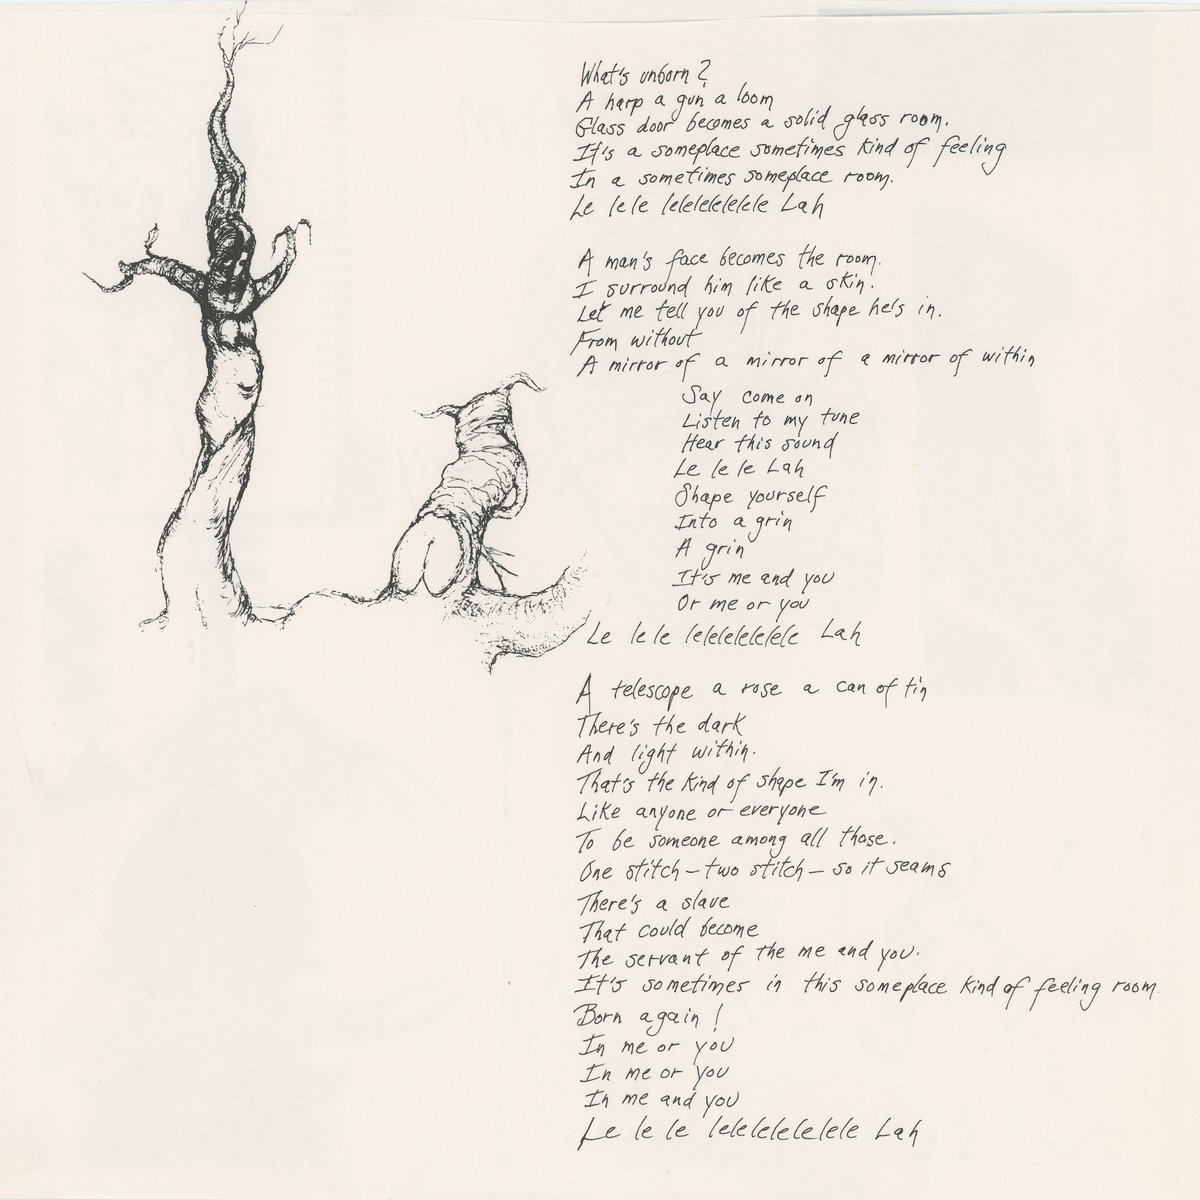 What's unborn?
A harp a gun a loom
Glass door becomes a solid glass room.
It's a someplace sometimes kind of feeling
In a sometimes someplace room.
Le le le lelelelelele Lah
A man's face becomes the room.
I surround him like a skin.
Let me tell you of the shape he's in.
From without
A mirror of a mirror of a mirror of within
Say come on
Listen to my tune
Hear this sound
Le le le Lah
Shape yourself
Into a grin
A grin
It's me and you
Or me or you
Le le le lelelelelelele Lah
A telescope a rose a can of tin
There's the dark
And light within.
That's the kind of shape I'm in.
Like anyone or everyone
To be someone among all those.
One stitch – two stitch – so it seams
There's a slave
That could become
The servant of the me and you.
It's sometimes in this someplace kind of feeling room
Born again!
In me or you
In me or you
In me and you
Le le le lelelelelelelele Lah